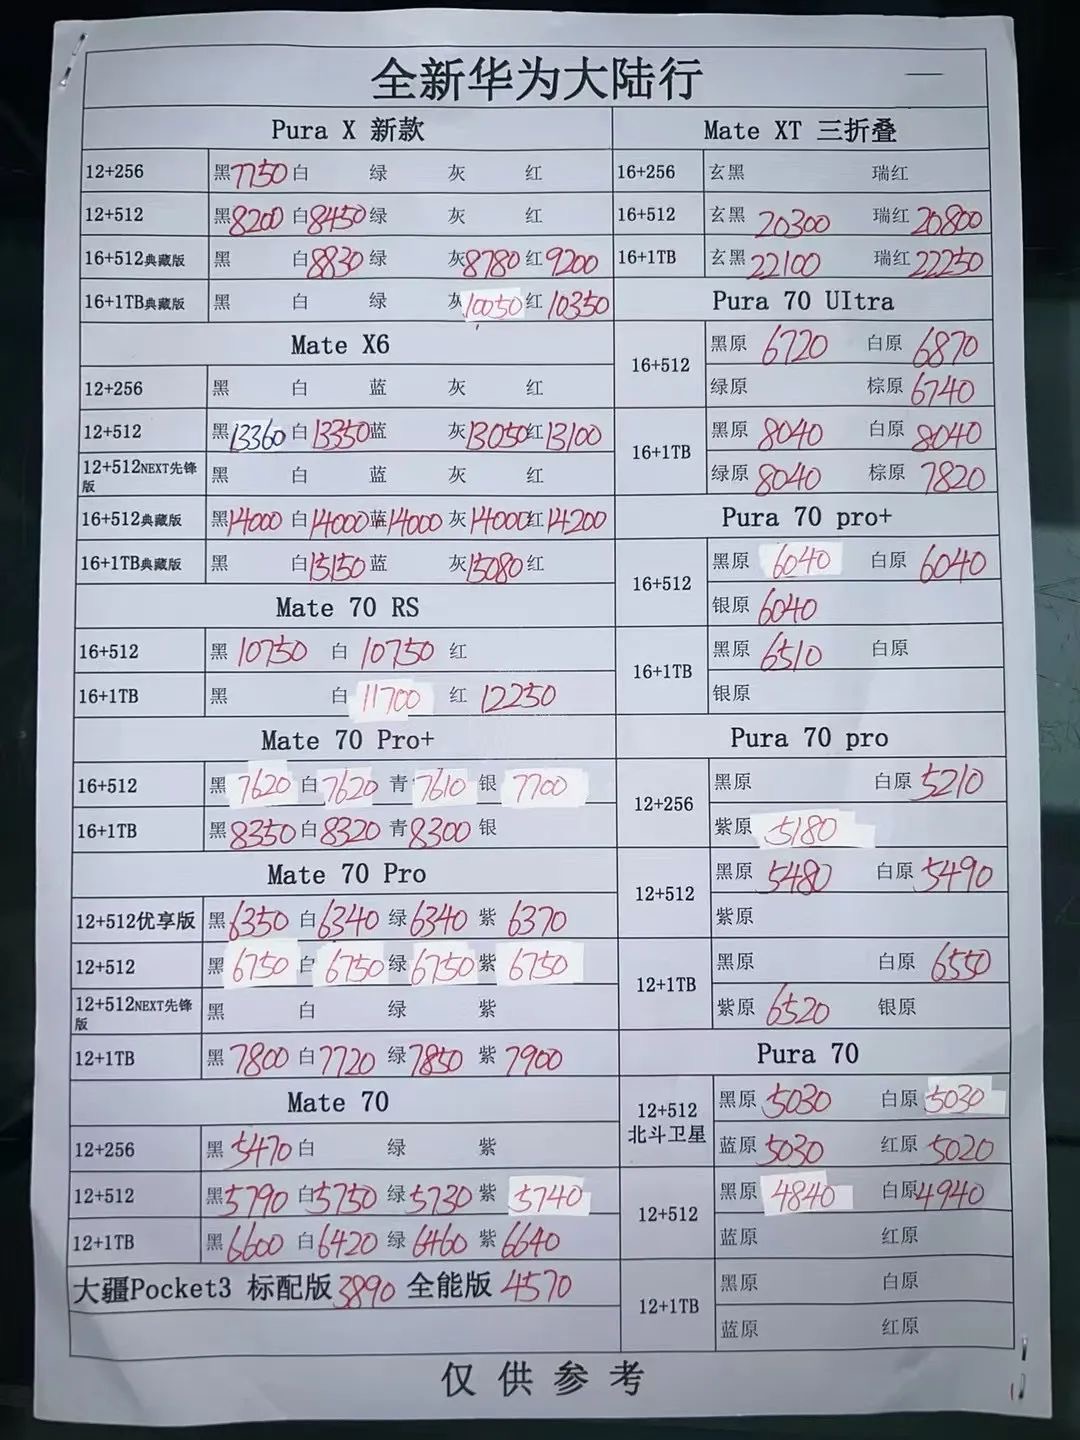 全新华为大陆行
Pura X 新款
12+256 黑7750 白 绿 灰 红
12+512 黑8200 白8450 绿 灰 红
16+512典藏版 黑 白8830 绿 灰8780 红9200
16+1TB典藏版 黑 白 绿 灰10050 红10350
Mate X6
12+256 黑 白 蓝 灰 红
12+512 黑13360 白13350 蓝 灰13050 红13100
12+512NEXT先锋版 黑 白 蓝 灰 红
16+512典藏版 黑14000 白14000 蓝14000 灰14000 红14200
16+1TB典藏版 黑 白15150 蓝 灰15080 红
Mate 70 RS
16+512 黑 10750 白 10750 红
16+1TB 黑 白 11700 红 12250
Mate 70 Pro+
16+512 黑 7620 白 7620 青 7610 银 7700
16+1TB 黑 8350 白 8320 青 8300 银
Mate 70 Pro
12+512优享版 黑 6350 白 6340 绿 6340 紫 6370
12+512 黑 6750 白 6750 绿 6750 紫 6750
12+512NEXT先锋版 黑 白 绿 紫
12+1TB 黑 7800 白 7720 绿 7850 紫 7900
Mate 70
12+256 黑 5470 白 绿 紫
12+512 黑 5790 白 5750 绿 5730 紫 5740
12+1TB 黑 6600 白 6420 绿 6460 紫 6640
大疆Pocket3 标配版 3890 全能版 4570
Mate XT 三折叠
16+256 玄黑 瑞红
16+512 玄黑 20300 瑞红 20800
16+1TB 玄黑 22100 瑞红 22250
Pura 70 UItra
16+512
黑原 6720 白原 6870
绿原 棕原 6740
16+1TB
黑原 8040 白原 8040
绿原 8040 棕原 7820
Pura 70 pro+
16+512
黑原 6040 白原 6040
银原 6040
16+1TB
黑原 6510 白原
银原
Pura 70 pro
12+256
黑原 白原 5210
紫原 5180
12+512
黑原 5480 白原 5490
紫原
12+1TB
黑原 白原 6550
紫原 6520 银原
Pura 70
12+512
北斗卫星
黑原 5030 白原 5030
蓝原 5030 红原 5020
12+512
黑原 4840 白原 4940
蓝原 红原
12+1TB
黑原 白原
蓝原 红原
仅供参考